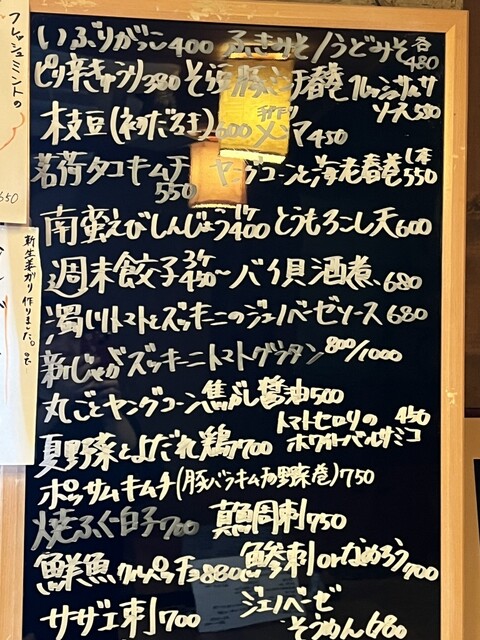 フレッシュミントの
650
新生姜ガリ作りました。
いぶりがっこ400 ふきみそ/うどみそ各480
ピリ辛きゅうり380 春巻 フレッシュサルサソース550
枝豆(初だるま)600 自家製メンマ450
茗荷タコキムチ550 ヤングコーンと海老春巻1本550
南蛮えびしんじょう1ケ400 とうもろこし天600
週末餃子3ケ450〜 バイ貝酒煮680
濁りトマトとズッキーニのジェノベーゼソース680
新じゃがズッキーニトマトグラタン800/1000
丸ごとヤングコーン焦がし醤油500
トマトセロリのホワイトバルサミコ450
夏野菜とよだれ鶏700
ポッサムキムチ(豚バラキムチの野菜巻)750
焼ふぐ白子700 真魚周刺750
鮮魚カルパッチョ880 鯵刺orなめろう700
サザエ刺700 ジェノベーゼそうめん680